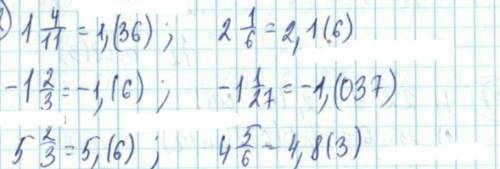 1 4/11 = 1,(36) ; 2 1/6 = 2,1(6)
-1 2/3 = -1,(6) ; -1 1/27 = -1,(037)
5 2/3 = 5,(6) ; 4 5/6 = 4,8(3)